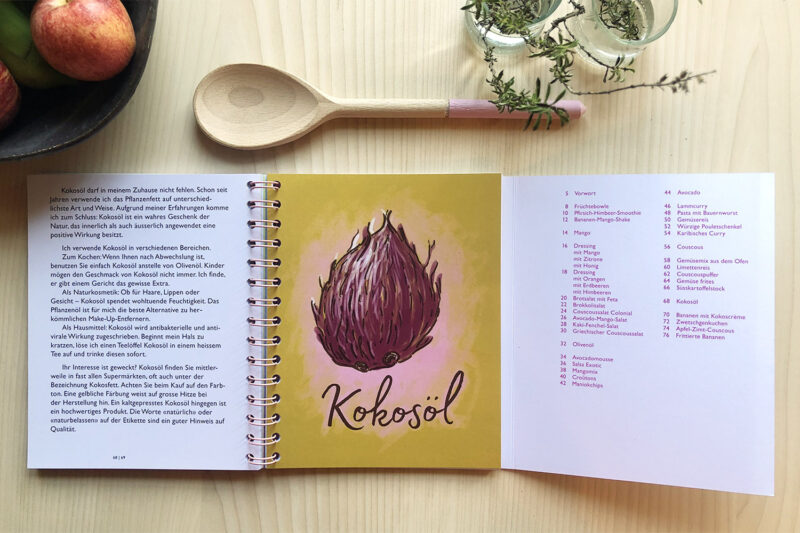 Kokosöl darf in meinem Zuhause nicht fehlen. Schon seit
Jahren verwende ich das Pflanzenfett auf unterschied-
lichste Art und Weise. Aufgrund meiner Erfahrungen komme
ich zum Schluss: Kokosöl ist ein wahres Geschenk der
Natur, das innerlich als auch äusserlich angewendet eine
positive Wirkung besitzt.
Ich verwende Kokosöl in verschiedenen Bereichen.
Zum Kochen: Wenn Ihnen nach Abwechslung ist,
benutzen Sie einfach Kokosöl anstelle von Olivenöl. Kinder
mögen den Geschmack von Kokosöl nicht immer. Ich finde,
er gibt einem Gericht das gewisse Extra.
Als Naturkosmetik: Ob für Haare, Lippen oder
Gesicht – Kokosöl spendet wohltuende Feuchtigkeit. Das
Pflanzenöl ist für mich die beste Alternative zu her-
kömmlichen Make-Up-Entfernern.
Als Hausmittel: Kokosöl wird antibakterielle und anti-
virale Wirkung zugeschrieben. Beginnt mein Hals zu
kratzen, löse ich einen Teelöffel Kokosöl in einem heissem
Tee auf und trinke diesen sofort.
Ihr Interesse ist geweckt? Kokosöl finden Sie mittler-
weile in fast allen Supermärkten, oft auch unter der
Bezeichnung Kokosfett. Achten Sie beim Kauf auf den Farb-
ton. Eine gelbliche Färbung weist auf grosse Hitze bei
der Herstellung hin. Ein kaltgepresstes Kokosöl hingegen ist
ein hochwertiges Produkt. Die Worte «natürlich» oder
«naturbelassen» auf der Etikette sind ein guter Hinweis auf
Qualität.
68 | 69
Kokosöl
5 Vorwort
8 Früchtebowle
10 Pfirsich-Himbeer-Smoothie
12 Bananen-Mango-Shake
14 Mango
16 Dressing
mit Mango
mit Zitrone
mit Honig
18 Dressing
mit Orangen
mit Erdbeeren
mit Himbeeren
20 Brotsalat mit Feta
22 Brokkolisalat
24 Couscoussalat Colonial
26 Avocado-Mango-Salat
28 Kaki-Fenchel-Salat
30 Griechischer Couscoussalat
32 Olivenöl
34 Avocadomousse
36 Salsa Exotic
38 Mangomix
40 Croûtons
42 Maniokchips
44 Avocado
46 Lammcurry
48 Pasta mit Bauernwurst
50 Gemüsereis
52 Würzige Pouletschenkel
54 Karibisches Curry
56 Couscous
58 Gemüsemix aus dem Ofen
60 Limettenreis
62 Couscouspuffer
64 Gemüse frites
66 Süsskartoffelstock
68 Kokosöl
70 Bananen mit Kokoscrème
72 Zwetschgenkuchen
74 Apfel-Zimt-Couscous
76 Frittierte Bananen